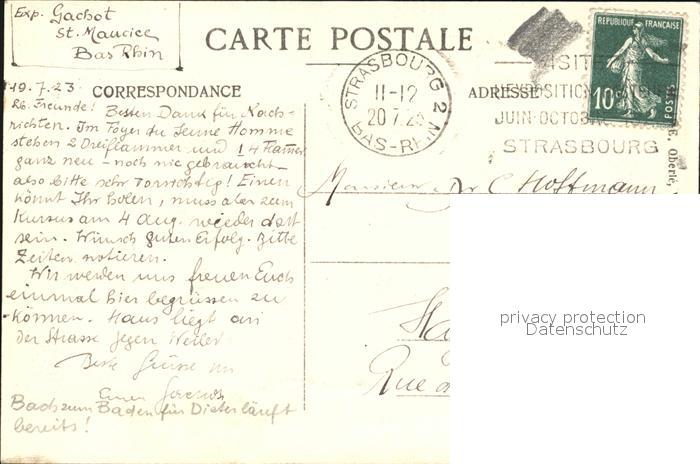 Exp. Gachot
St. Maurice
Bas Rhin
CARTE POSTALE
REPUBLIQUE FRANÇAISE
10c
POSTES
STRASBOURG 2
11-12
20 7 23
BAS-RHIN
VISITEZ
EXPOSITION
JUIN-OCTOB
STRASBOURG
CORRESPONDANCE
ADRESSE
19.7.23
Lb. Freunde! Besten Dank für Nach-
richten. Im Foyer du Jeune Homme
stehen 2 Dreiflammer und 1 4 Flammer
ganz neu - noch nie gebraucht
also bitte sehr vorsichtig! Einen
könnt Ihr holen, muss aber zum
Kursus am 4 Aug. wieder dort
sein. Wünsch guten Erfolg. Bitte
Zeiten notieren.
Wir werden uns freuen Euch
einmal hier begrüssen zu
können. Haus liegt an
der Strasse gegen Weiler.
Beste Grüsse
Euer Gachot
Bach zum Baden für Dieter läuft
bereits!
Monsieur C. Hoffmann
Rue
privacy protection
Datenschutz